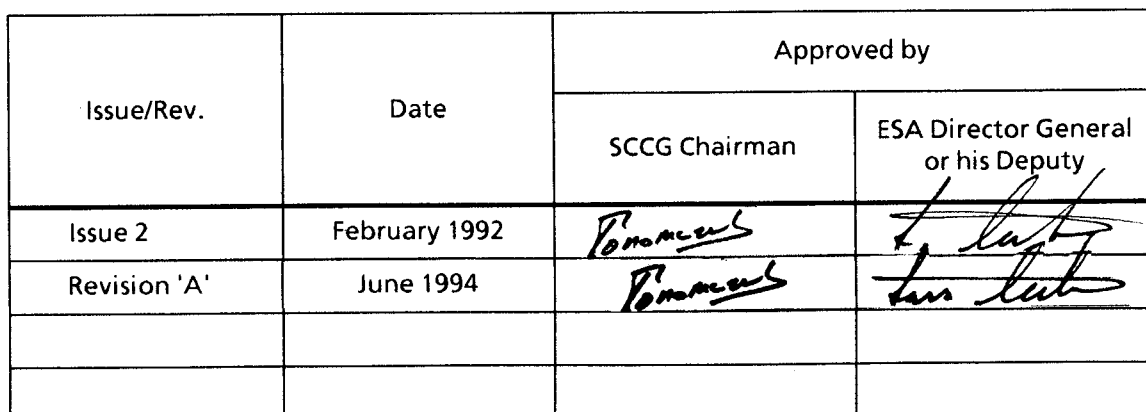 Issue/Rev.
Date
Approved by
SCCG Chairman
ESA Director General
or his Deputy
Issue 2
February 1992
Revision 'A'
June 1994